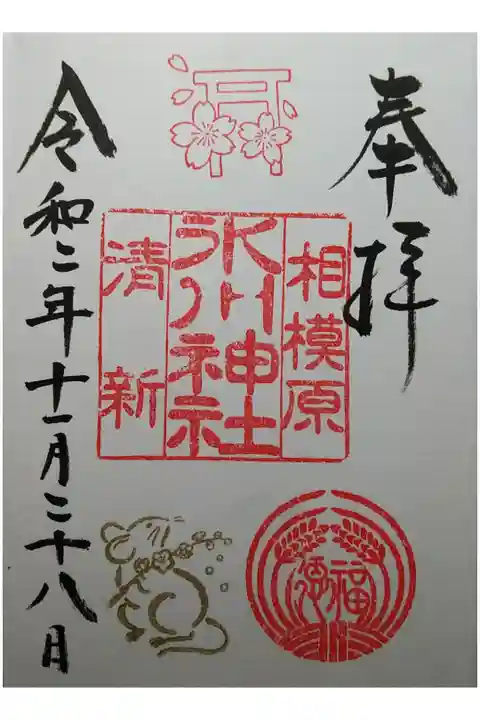 奉拝
相模原
氷川神社
清新
福徳
令和二年十一月二十八日